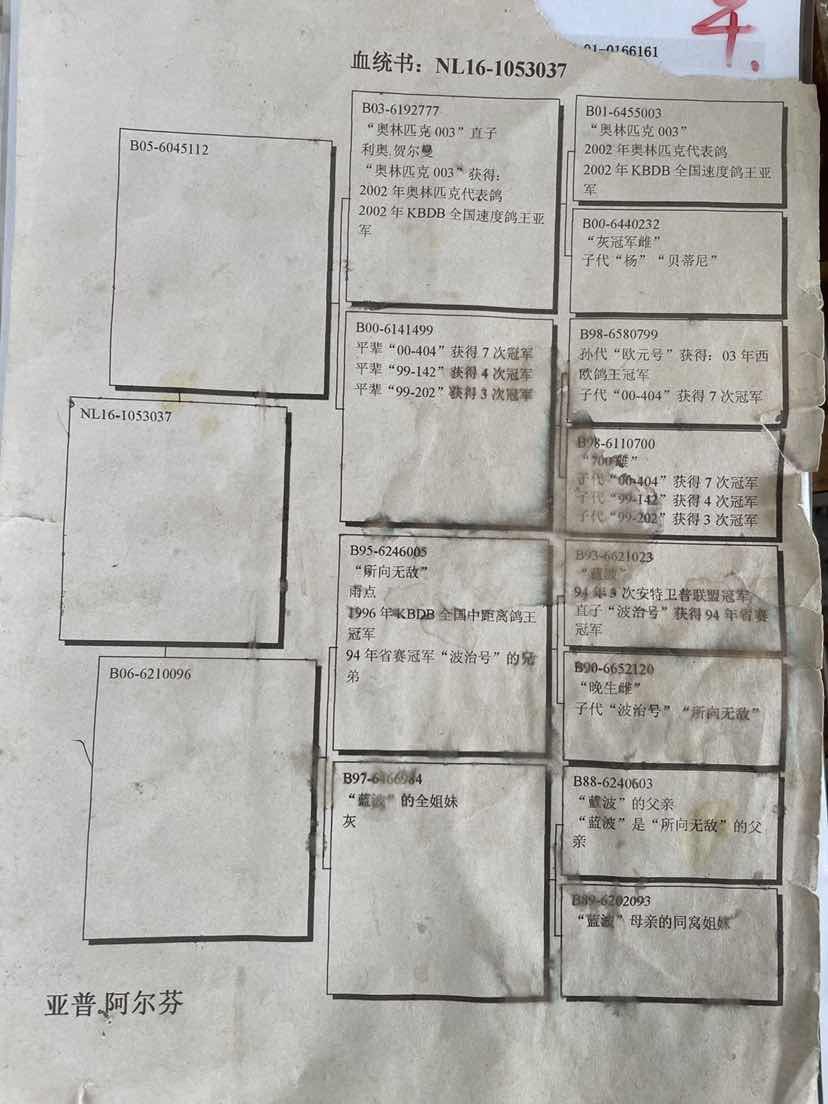 01-0166161
血统书：NL16-1053037
B05-6045112
NL16-1053037
B06-6210096
B03-6192777
“奥林匹克 003”直子
利奥.贺尔曼
“奥林匹克 003”获得：
2002 年奥林匹克代表鸽
2002 年 KBDB 全国速度鸽王亚
军
B00-6141499
平辈“00-404”获得 7 次冠军
平辈“99-142”获得 4 次冠军
平辈“99-202”获得 3 次冠军
B95-6246005
“所向无敌”
雨点
1996 年 KBDB 全国中距离鸽王
冠军
94 年省赛冠军“波治号”的兄
弟
B97-6466984
“蓝波”的全姐妹
灰
B01-6455003
“奥林匹克 003”
2002 年奥林匹克代表鸽
2002 年 KBDB 全国速度鸽王亚
军
B00-6440232
“灰冠军雌”
子代“杨”“贝蒂尼”
B98-6580799
孙代“欧元号”获得：03 年西
欧鸽王冠军
子代“00-404”获得 7 次冠军
B98-6110700
“700 雌”
子代“00-404”获得 7 次冠军
子代“99-142”获得 4 次冠军
子代“99-202”获得 3 次冠军
B93-6621023
“蓝波”
94 年 3 次安特卫普联盟冠军
直子“波治号”获得 94 年省赛
冠军
B90-6652120
“晚生雌”
子代“波治号”“所向无敌”
B88-6240603
“蓝波”的父亲
“蓝波”是“所向无敌”的父
亲
B89-6202093
“蓝波”母亲的同窝姐妹
亚普.阿尔芬